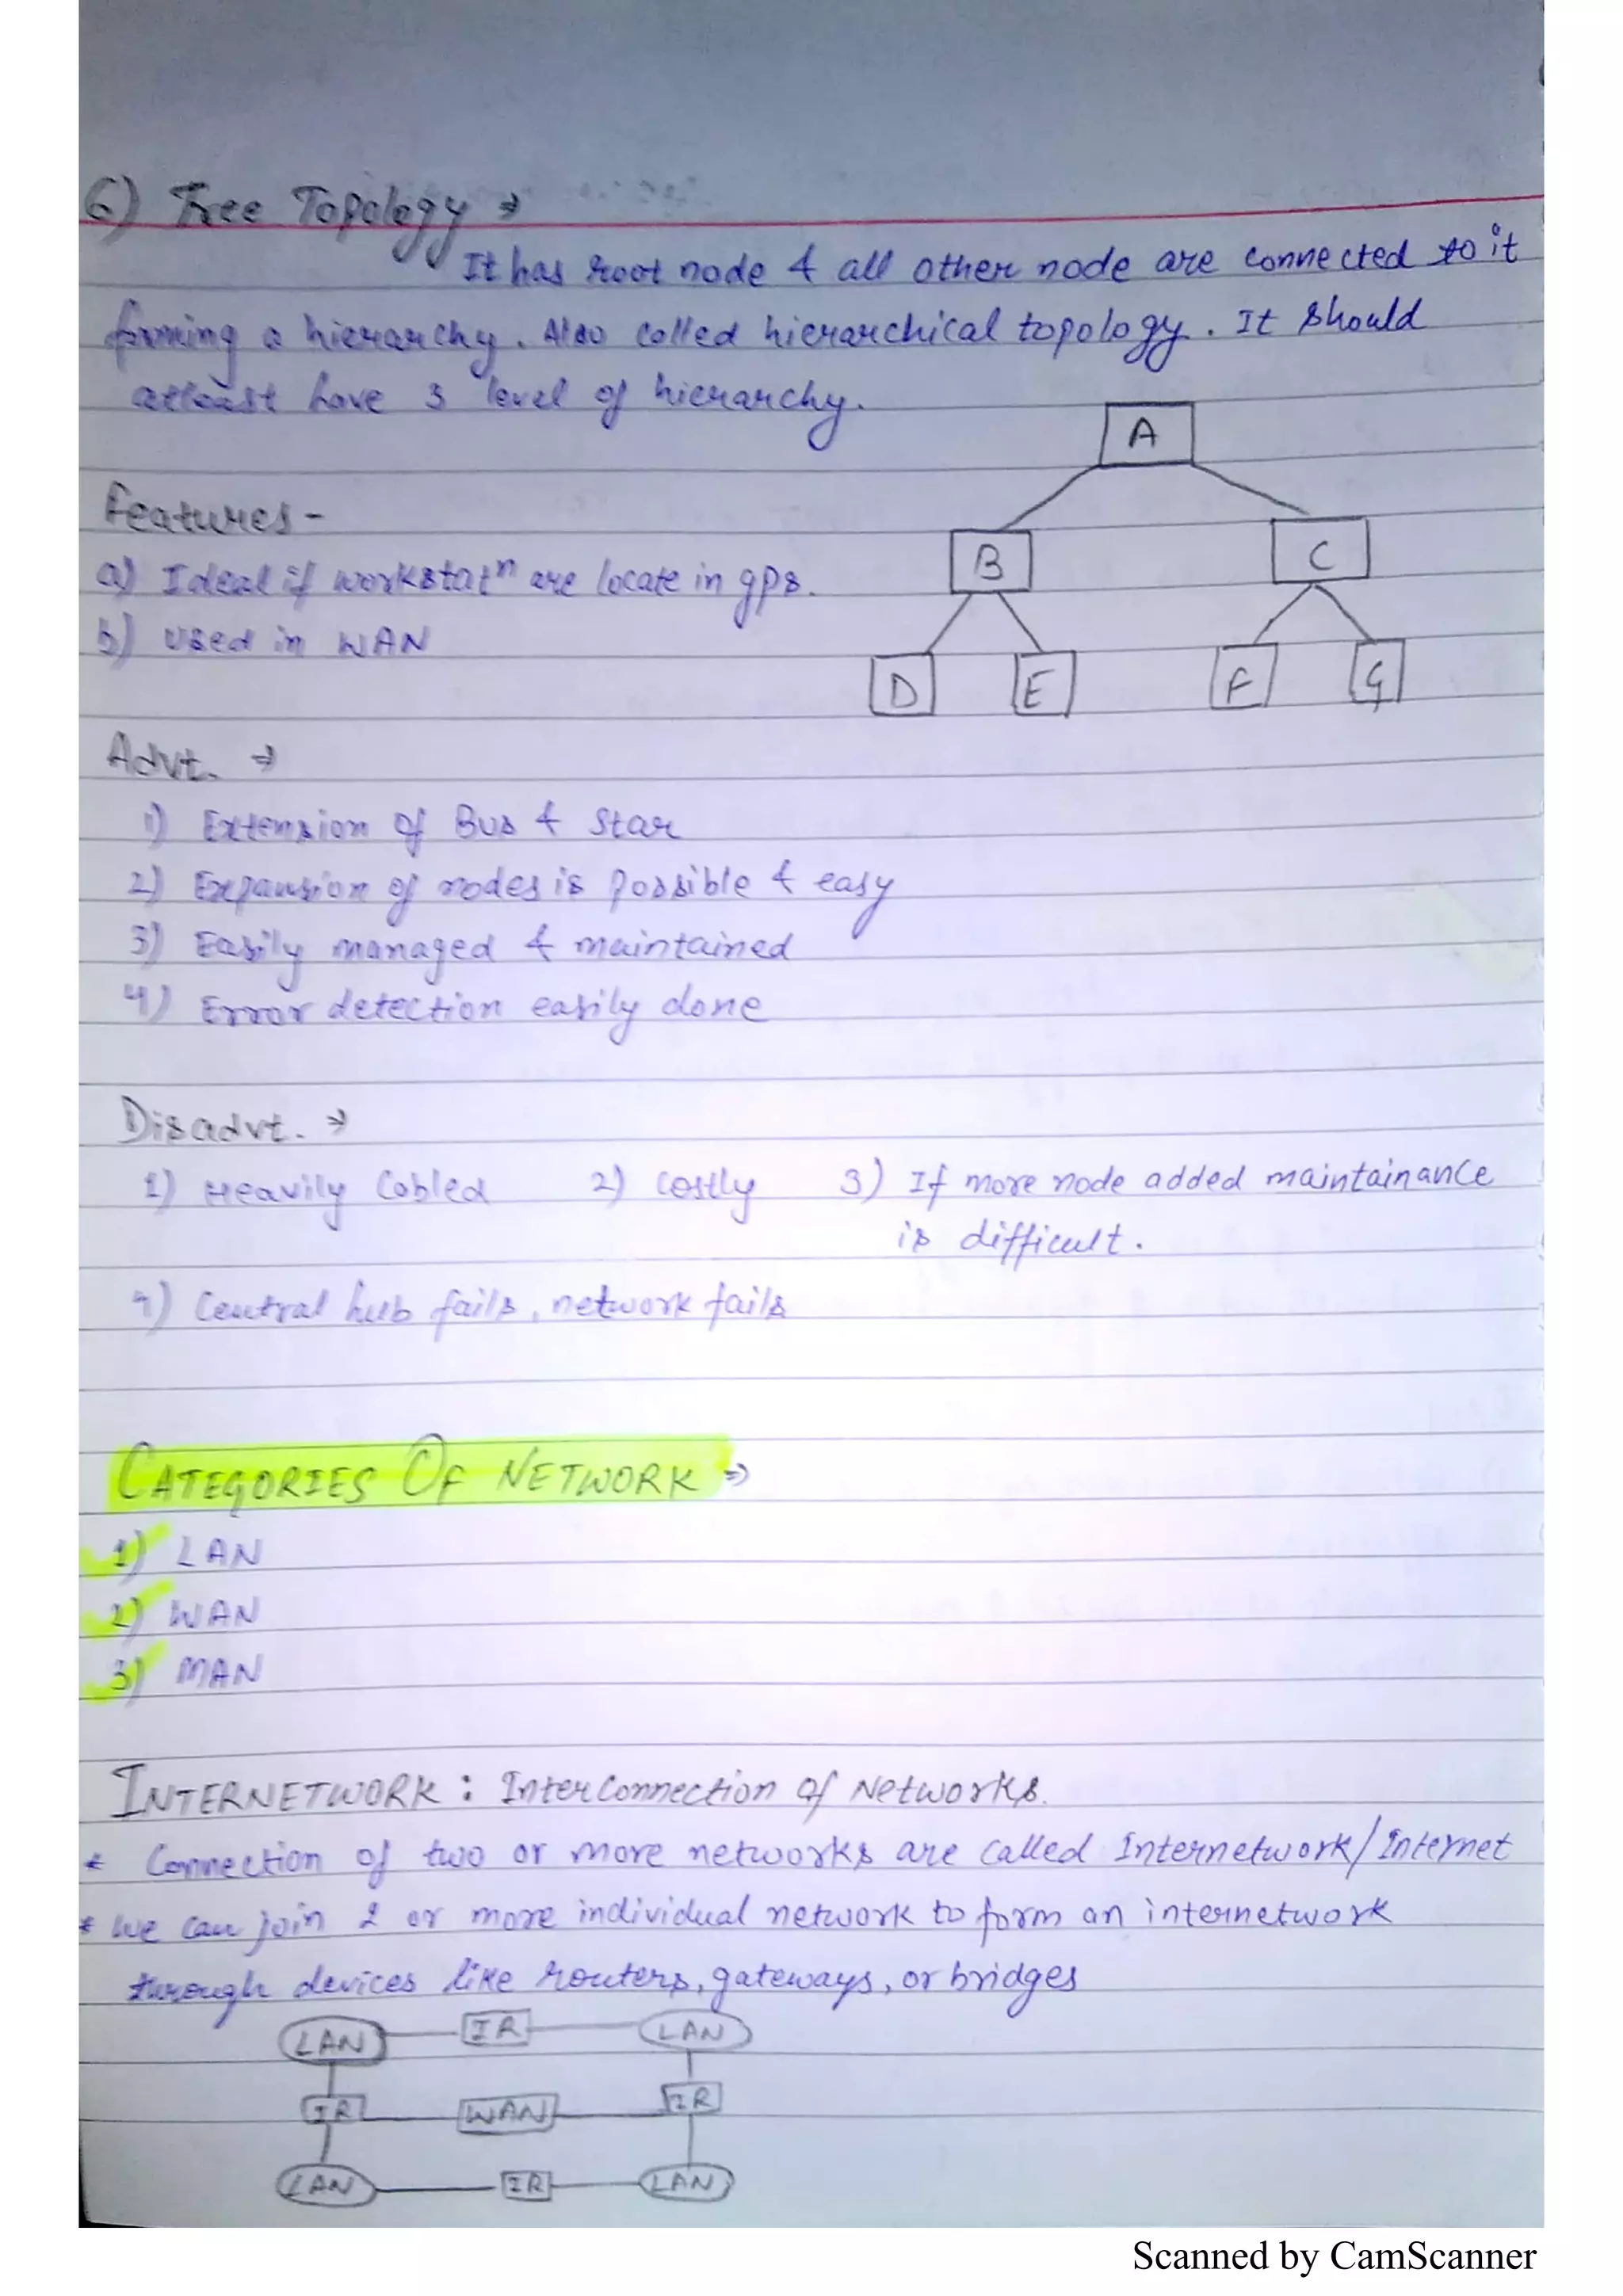 6) Tree Topology →
It has root node & all other node are connected to it
forming a hierarchy. Also called hierarchical topology. It should
atleast have 3 level of hierarchy.
A
Features -
B C
a) Ideal if workstatⁿ are locate in gps.
b) Used in WAN
D E F G
Advt. →
1) Extension of Bus & Star
2) Expansion of nodes is possible & easy
3) Easily managed & maintained
4) Error detection easily done
Disadvt. →
1) Heavily Cabled 2) Costly 3) If more node added maintainance
is difficult.
4) Central hub fails, network fails
CATEGORIES OF NETWORK ⇒
1) LAN
2) WAN
3) MAN
INTERNETWORK : InterConnection of Networks.
* Connection of two or more networks are called Internetwork/Internet
* We can join 2 or more individual network to form an internetwork
through devices like routers, gateways, or bridges
LAN IR LAN
IR WAN IR
LAN IR LAN
Scanned by CamScanner